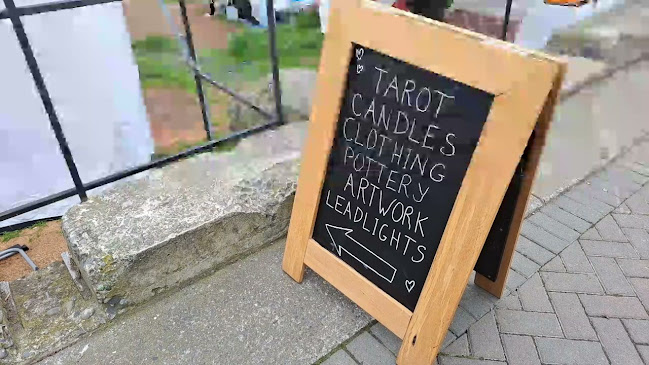 TAROT
CANDLES
CLOTHING
POTTERY
ARTWORK
LEADLIGHTS